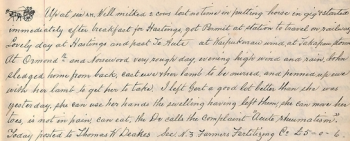 Up at six. Nell milked 2 cows lost as time in putting horse in gig & started
immediately after breakfast for Hastings, got Permit at Station to travel on railway
Lovely day at Hastings and past Te Aute. at Waipukurau wind, at Takapau
At Ormond & Norsewood very rough day, evening high wind and rain, John
sledged home from back, east ewe & her lamb to be and penned up ewe
with her lamb to get her to take. I left Gert a good bit better than she was
yesterday, she can use her hands the swelling having left them, she can move her
toes, is not in pain, can eat, the Dr. calls the Complaint "Acute Rheumatism".
Today posted to Thomas W. Deakes Sec. N.Z Farmers Fertilizing Co £5-0-6.